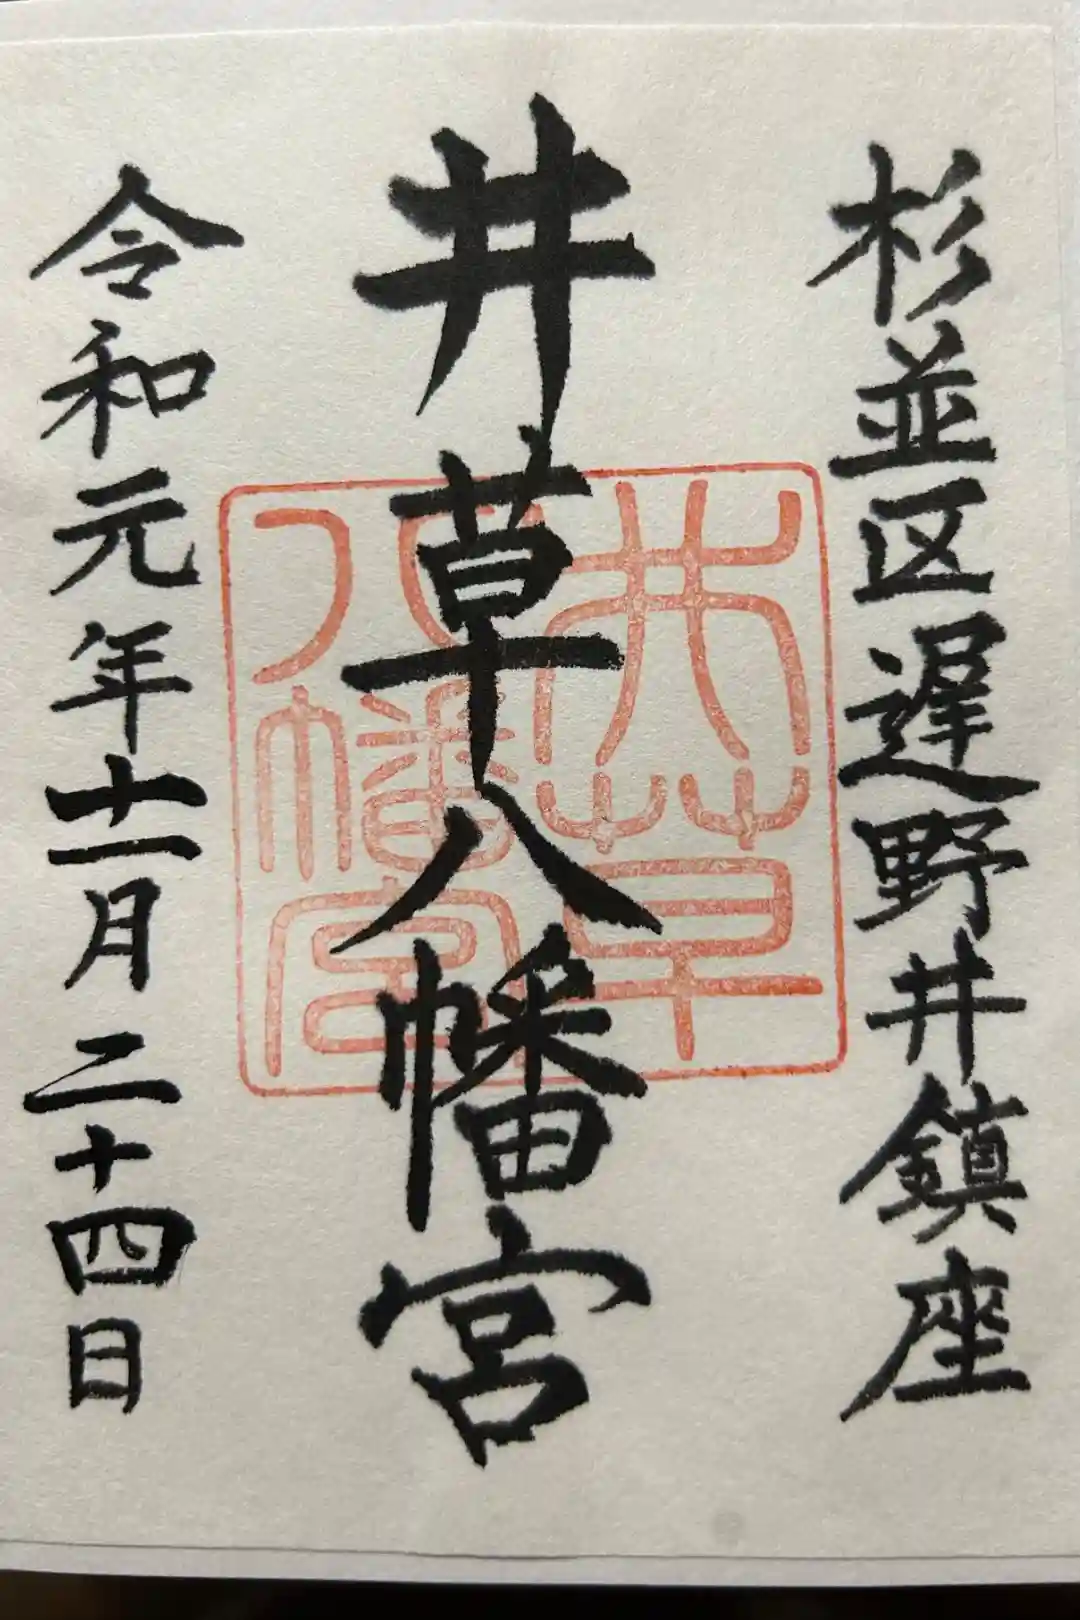 杉並区遅野井鎮座
井草八幡宮
井草
八幡宮
令和元年十一月二十四日